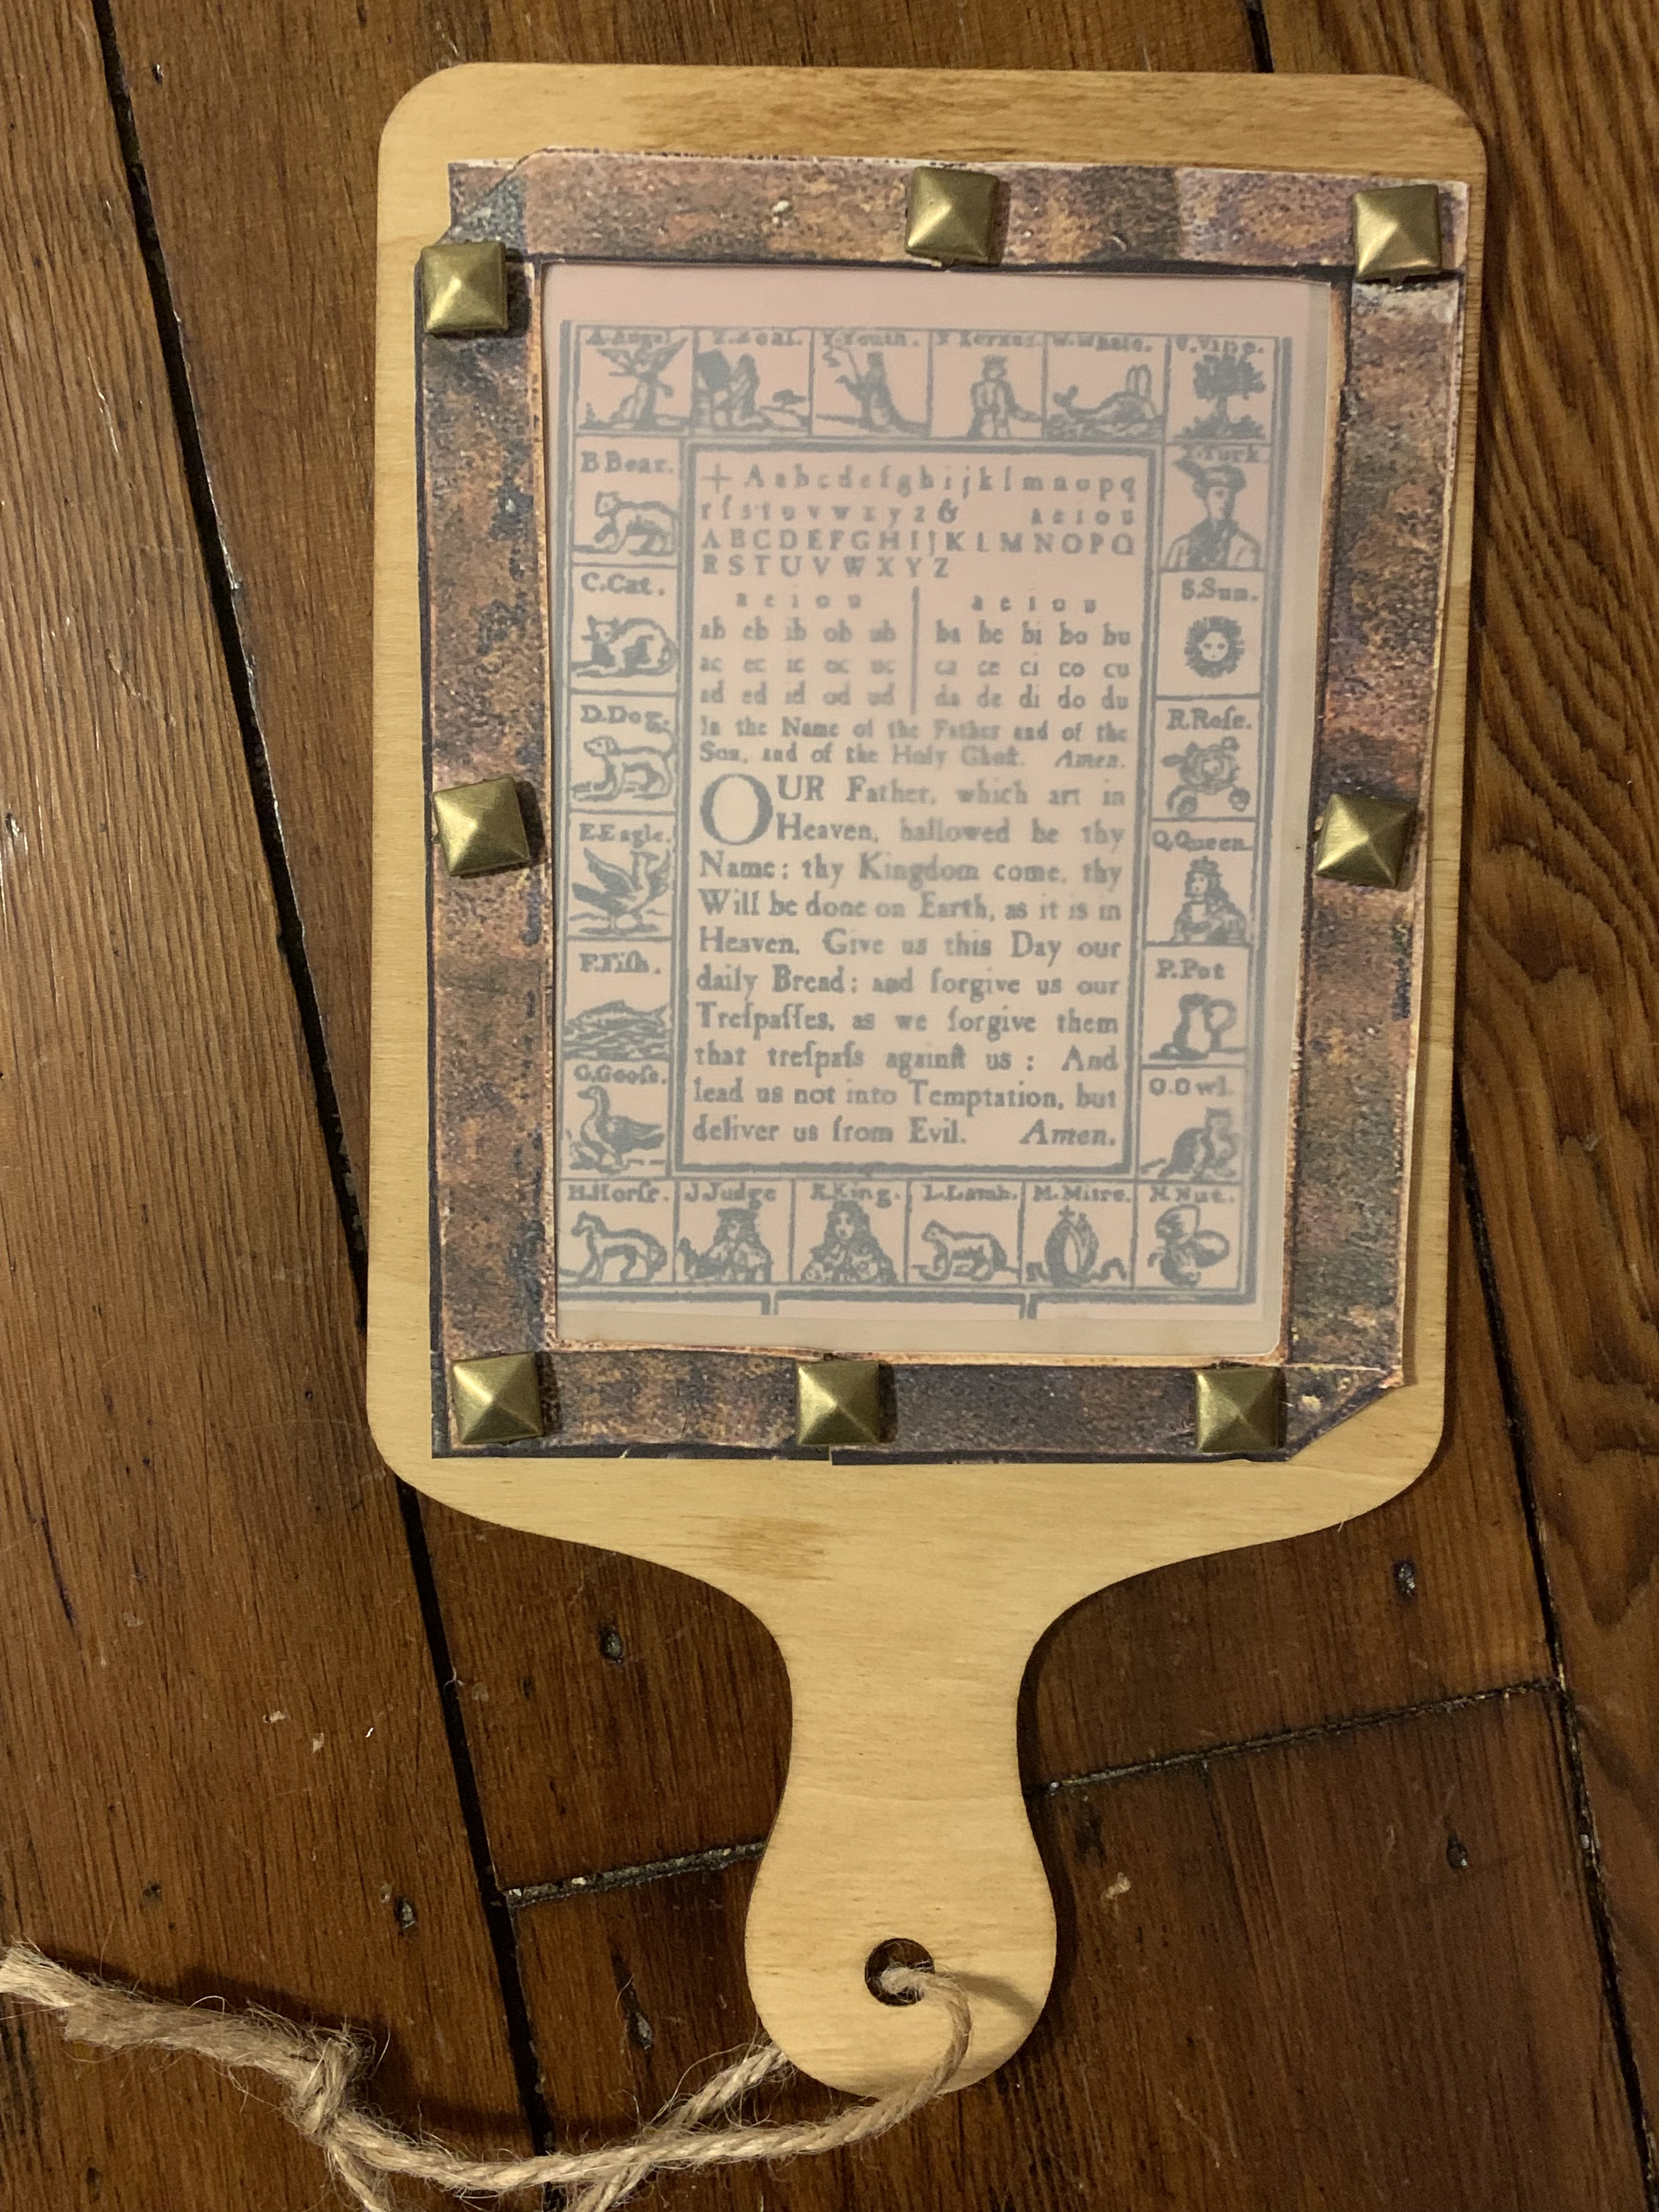 A.Angel Z.Zeal. Y.Youth. X Xerxes. W.Whale. V.Vine.
B Bear.
C.Cat.
D.Dog.
E.Eagle.
F.Fiſh.
G.Gooſe.
+ A a b c d e f g h i j k l m n o p q
r ſ s t u v w x y z & a e i o u
A B C D E F G H I J K L M N O P Q
R S T U V W X Y Z
a e i o u | a e i o u
ab eb ib ob ub | ba be bi bo bu
ac ec ic oc uc | ca ce ci co cu
ad ed id od ud | da de di do du
In the Name of the Father and of the
Son, and of the Holy Ghoſt. Amen.
OUR Father, which art in
Heaven, hallowed be thy
Name; thy Kingdom come, thy
Will be done on Earth, as it is in
Heaven. Give us this Day our
daily Bread; and forgive us our
Treſpaſſes, as we forgive them
that treſpaſs againſt us : And
lead us not into Temptation, but
deliver us from Evil. Amen.
T.Turk
S.Sun.
R.Roſe.
Q.Queen
P.Pot
O.Owl.
H.Horſe. J.Judge K.King. L.Lamb. M.Mitre. N.Nut.